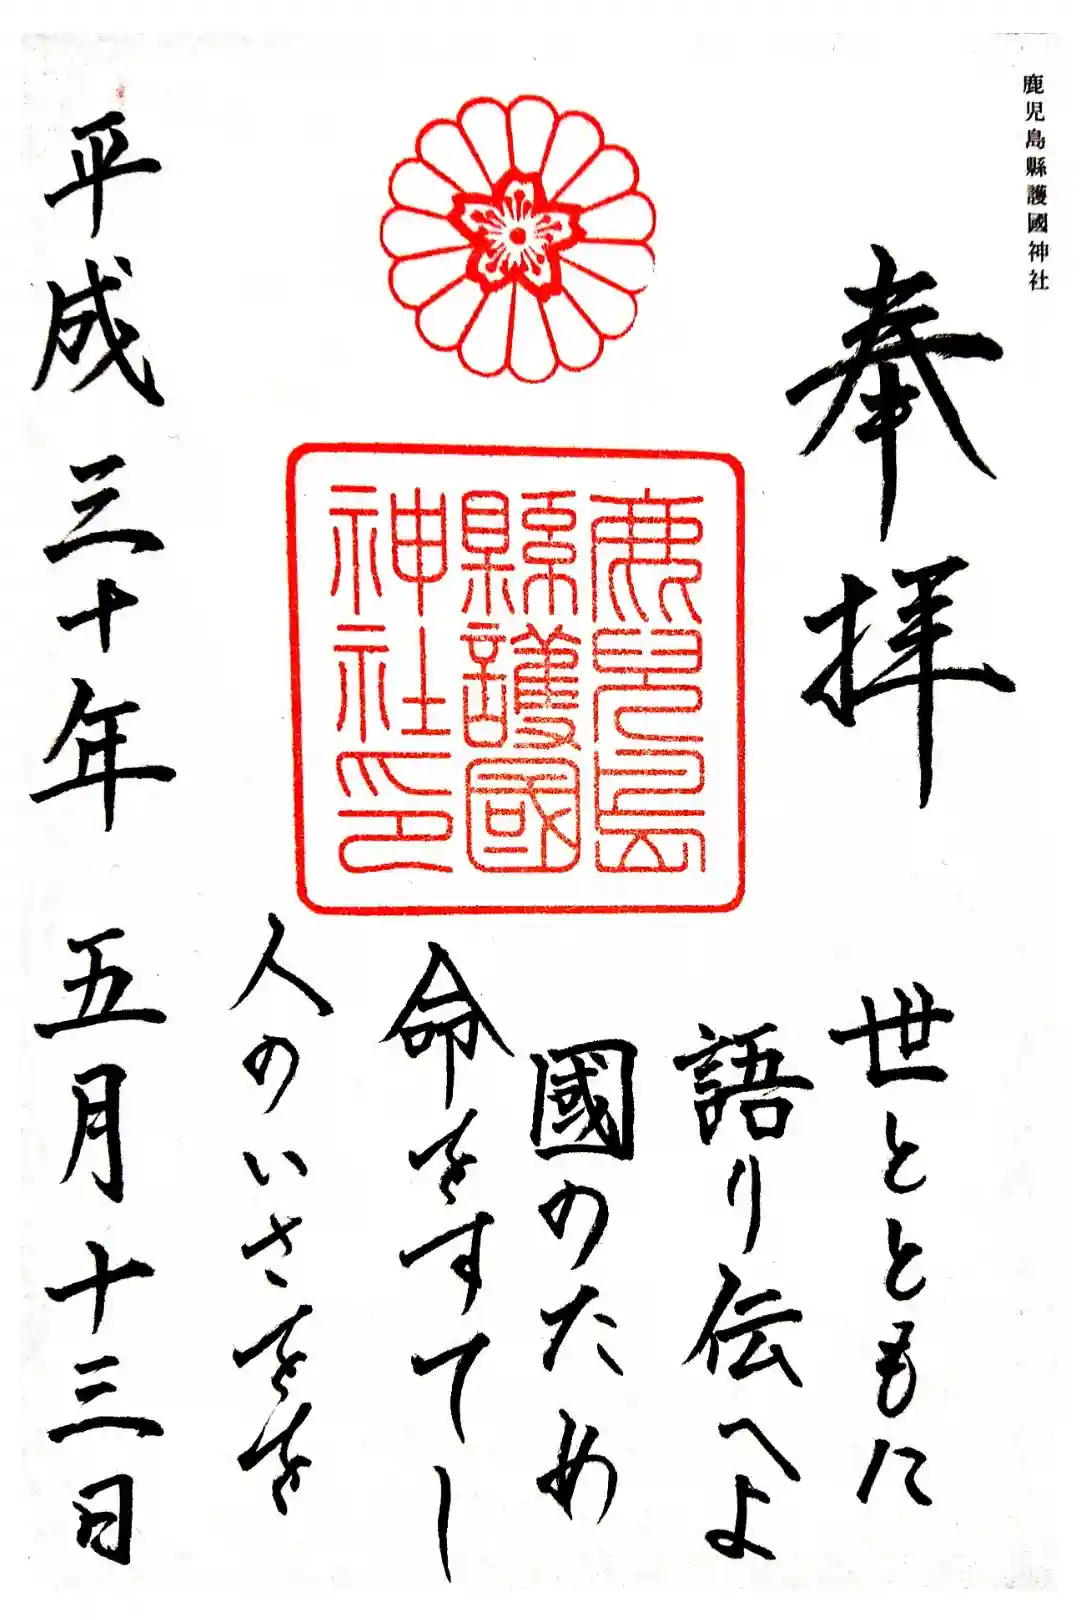 鹿児島縣護國神社
奉拝
鹿兒島
縣護國
神社印
世とともに
語り伝へよ
國のため
命をすてし
人のいさをを
平成三十年 五月十三日